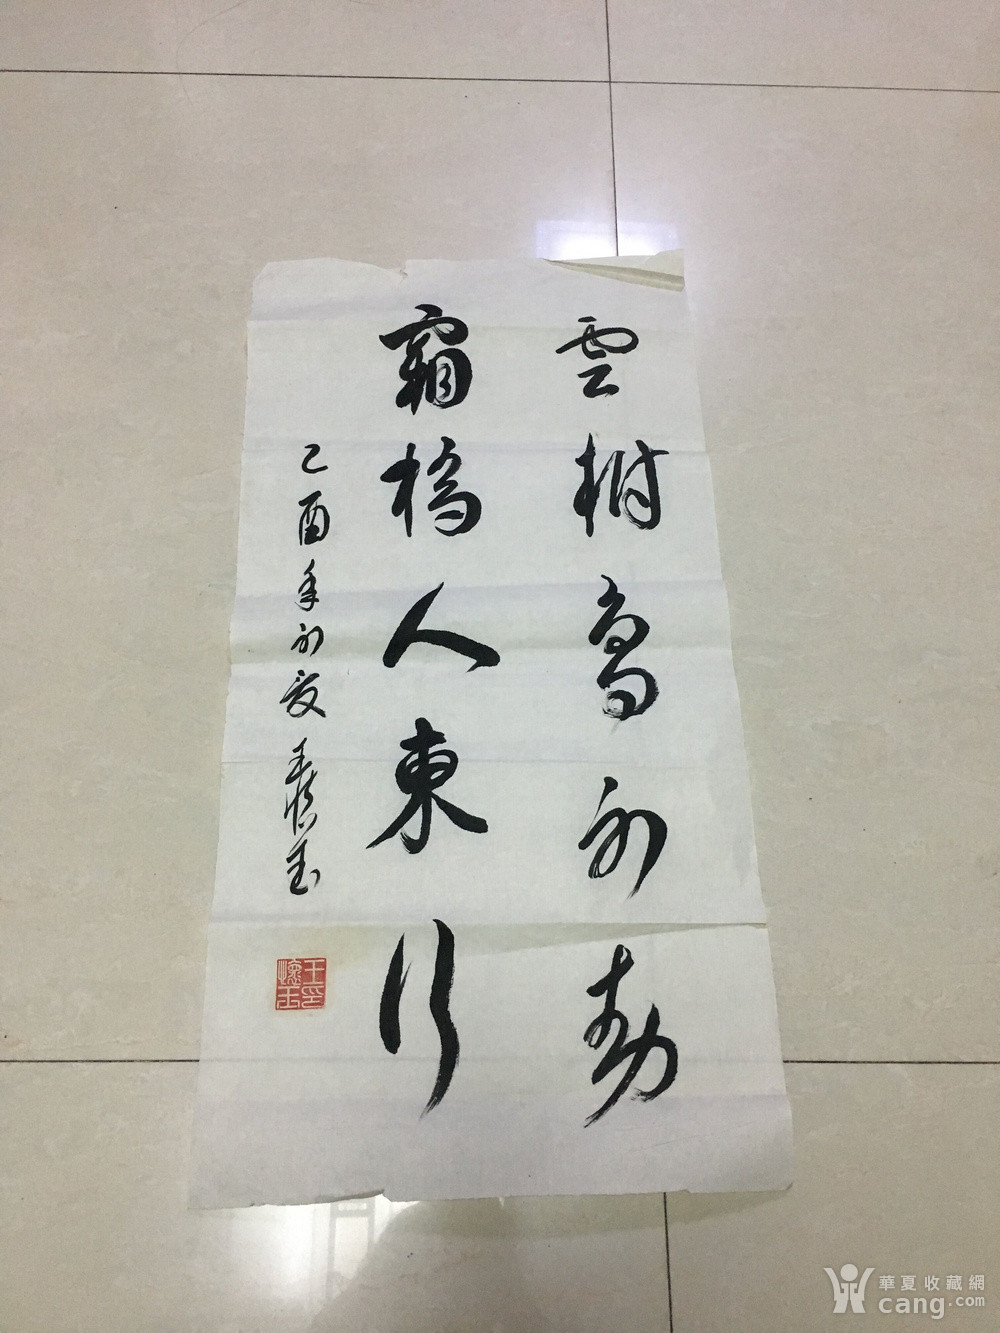 雲樹鳥初動
霜橋人東行
乙酉年初夏 王懷玉
王印懷玉
華夏收藏網
cang.com